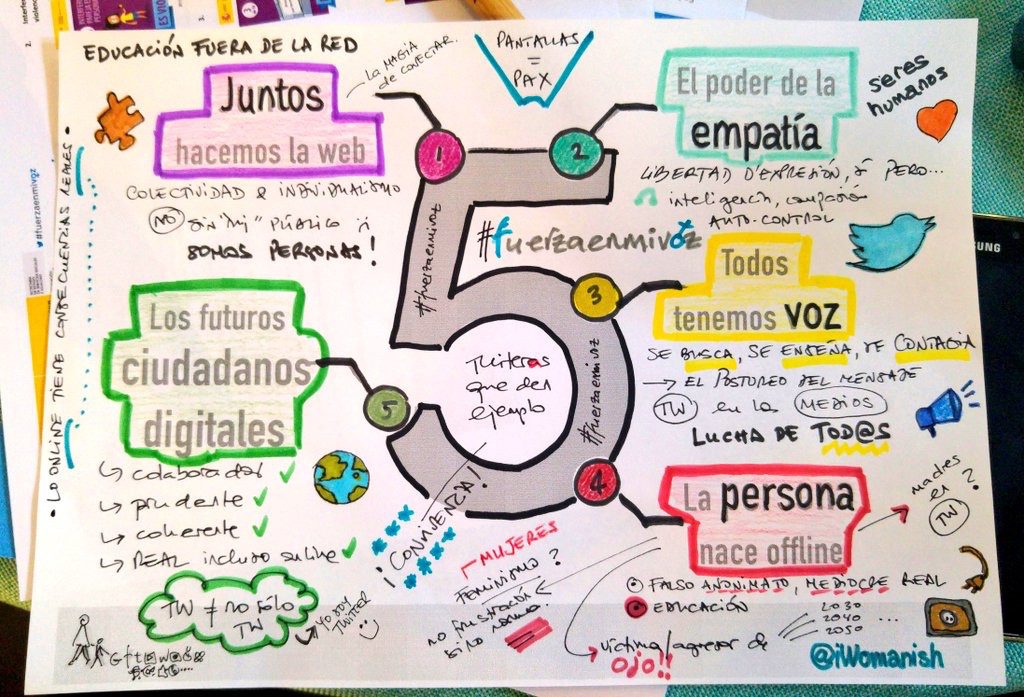 EDUCACIÓN FUERA DE LA RED
LA MAGIA
de CONECTAR.
PANTALLAS
=
PAX
Juntos
hacemos la web
1
COLECTIVIDAD & INDIVIDUALISMO
NO sin "mi" PÚBLICO
SOMOS PERSONAS!
2
El poder de la
empatía
seres
humanos
LIBERTAD D'EXPRESIÓN, sí PERO...
inteligencia, compasión
AUTO-CONTROL
#fuerzaenmivoz
#fuerzaenmivoz
#fuerzaenmivoz
3
Todos
tenemos VOZ
SE BUSCA, SE ENSEÑA, SE CONTAGIA
→ EL POSTUREO DEL MENSAJE
TW en los MEDIOS
LUCHA DE TOD@S
SUNG
Tuiteras
que den
ejemplo
¡CONVIVENCIA!
4
La persona
nace offline
madres
en ?
TW
FALSO ANONIMATO, MEDIOCRE REAL
EDUCACIÓN
2030
2040 ...
2050
víctima/agresor de
OJO!!
@iWomanish
MUJERES
FEMINISMO ?
no FRUSTRACIÓN
sino
5
Los futuros
ciudadanos
digitales
colaborador ✓
prudente ✓
coherente ✓
REAL incluso online ✓
TW ≠ no sólo
TW
YO SOY
TWITTER
G f t
• LO ONLINE TIENE CONSECUENCIAS REALES •
#fuerzaenmivoz